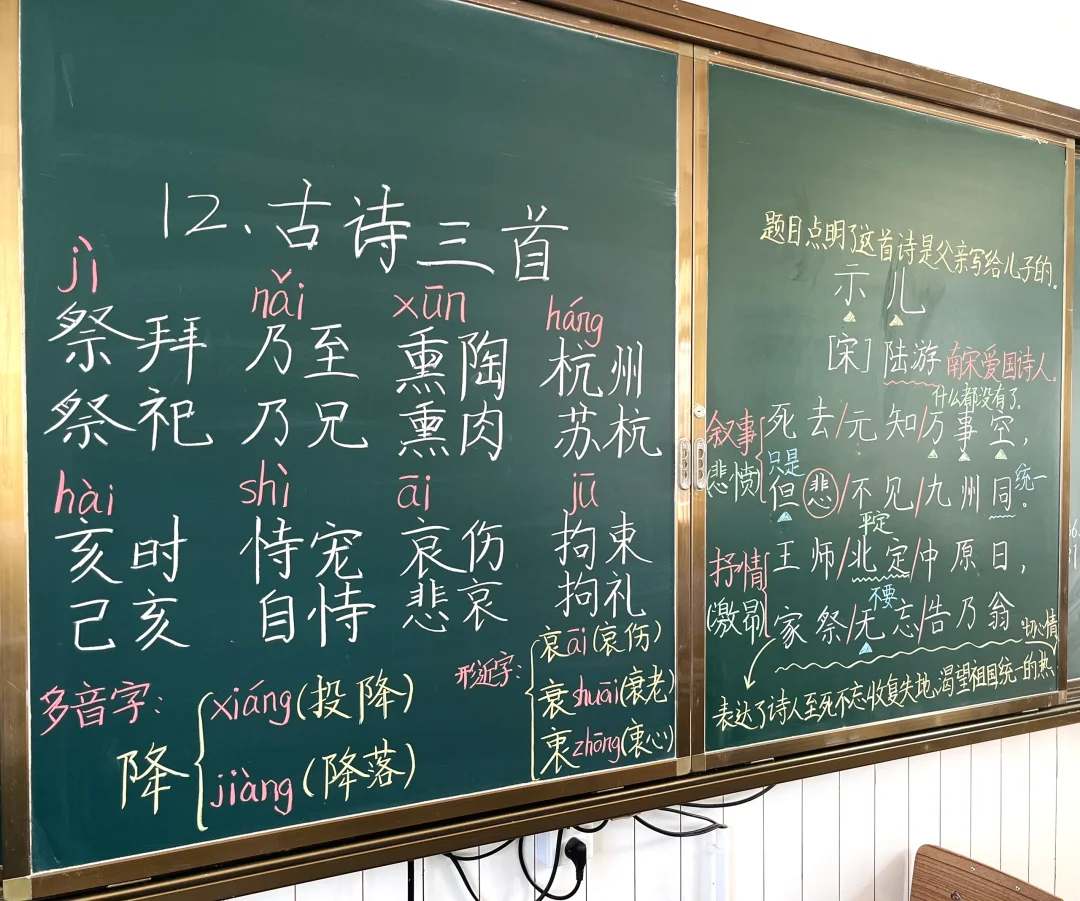 12.古诗三首
jì nǎi xūn háng
祭拜 乃至 熏陶 杭州
祭祀 乃兄 熏肉 苏杭
hài shì āi jū
亥时 恃宠 哀伤 拘束
己亥 自恃 悲哀 拘礼
多音字:
降
xiáng(投降)
jiàng(降落)
形近字:
哀āi(哀伤)
衰shuāi(衰老)
衷zhōng(衷心)
题目点明了这首诗是父亲写给儿子的。
示儿
[宋]陆游 南宋爱国诗人。
什么都没有了。
叙事
(悲愤)
死去/元知/万事空,
只是 统一
但悲/不见/九州同。
平定
抒情
(激昂)
王师/北定/中原日,
不要
家祭/无忘/告乃翁
表达了诗人至死不忘收复失地、渴望祖国统一的热
切心情